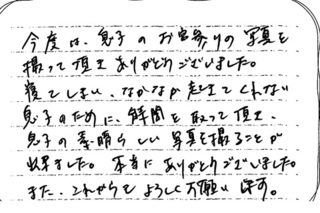 今度は、息子のお宮参りの写真を
撮って頂き ありがとうございました。
寝てしまい、なかなか起きてくれない
息子のために、時間を取って頂き、
息子の素晴らしい写真を撮ることが
出来ました。本当に ありがとうございました。
また、これからも よろしくお願いします。